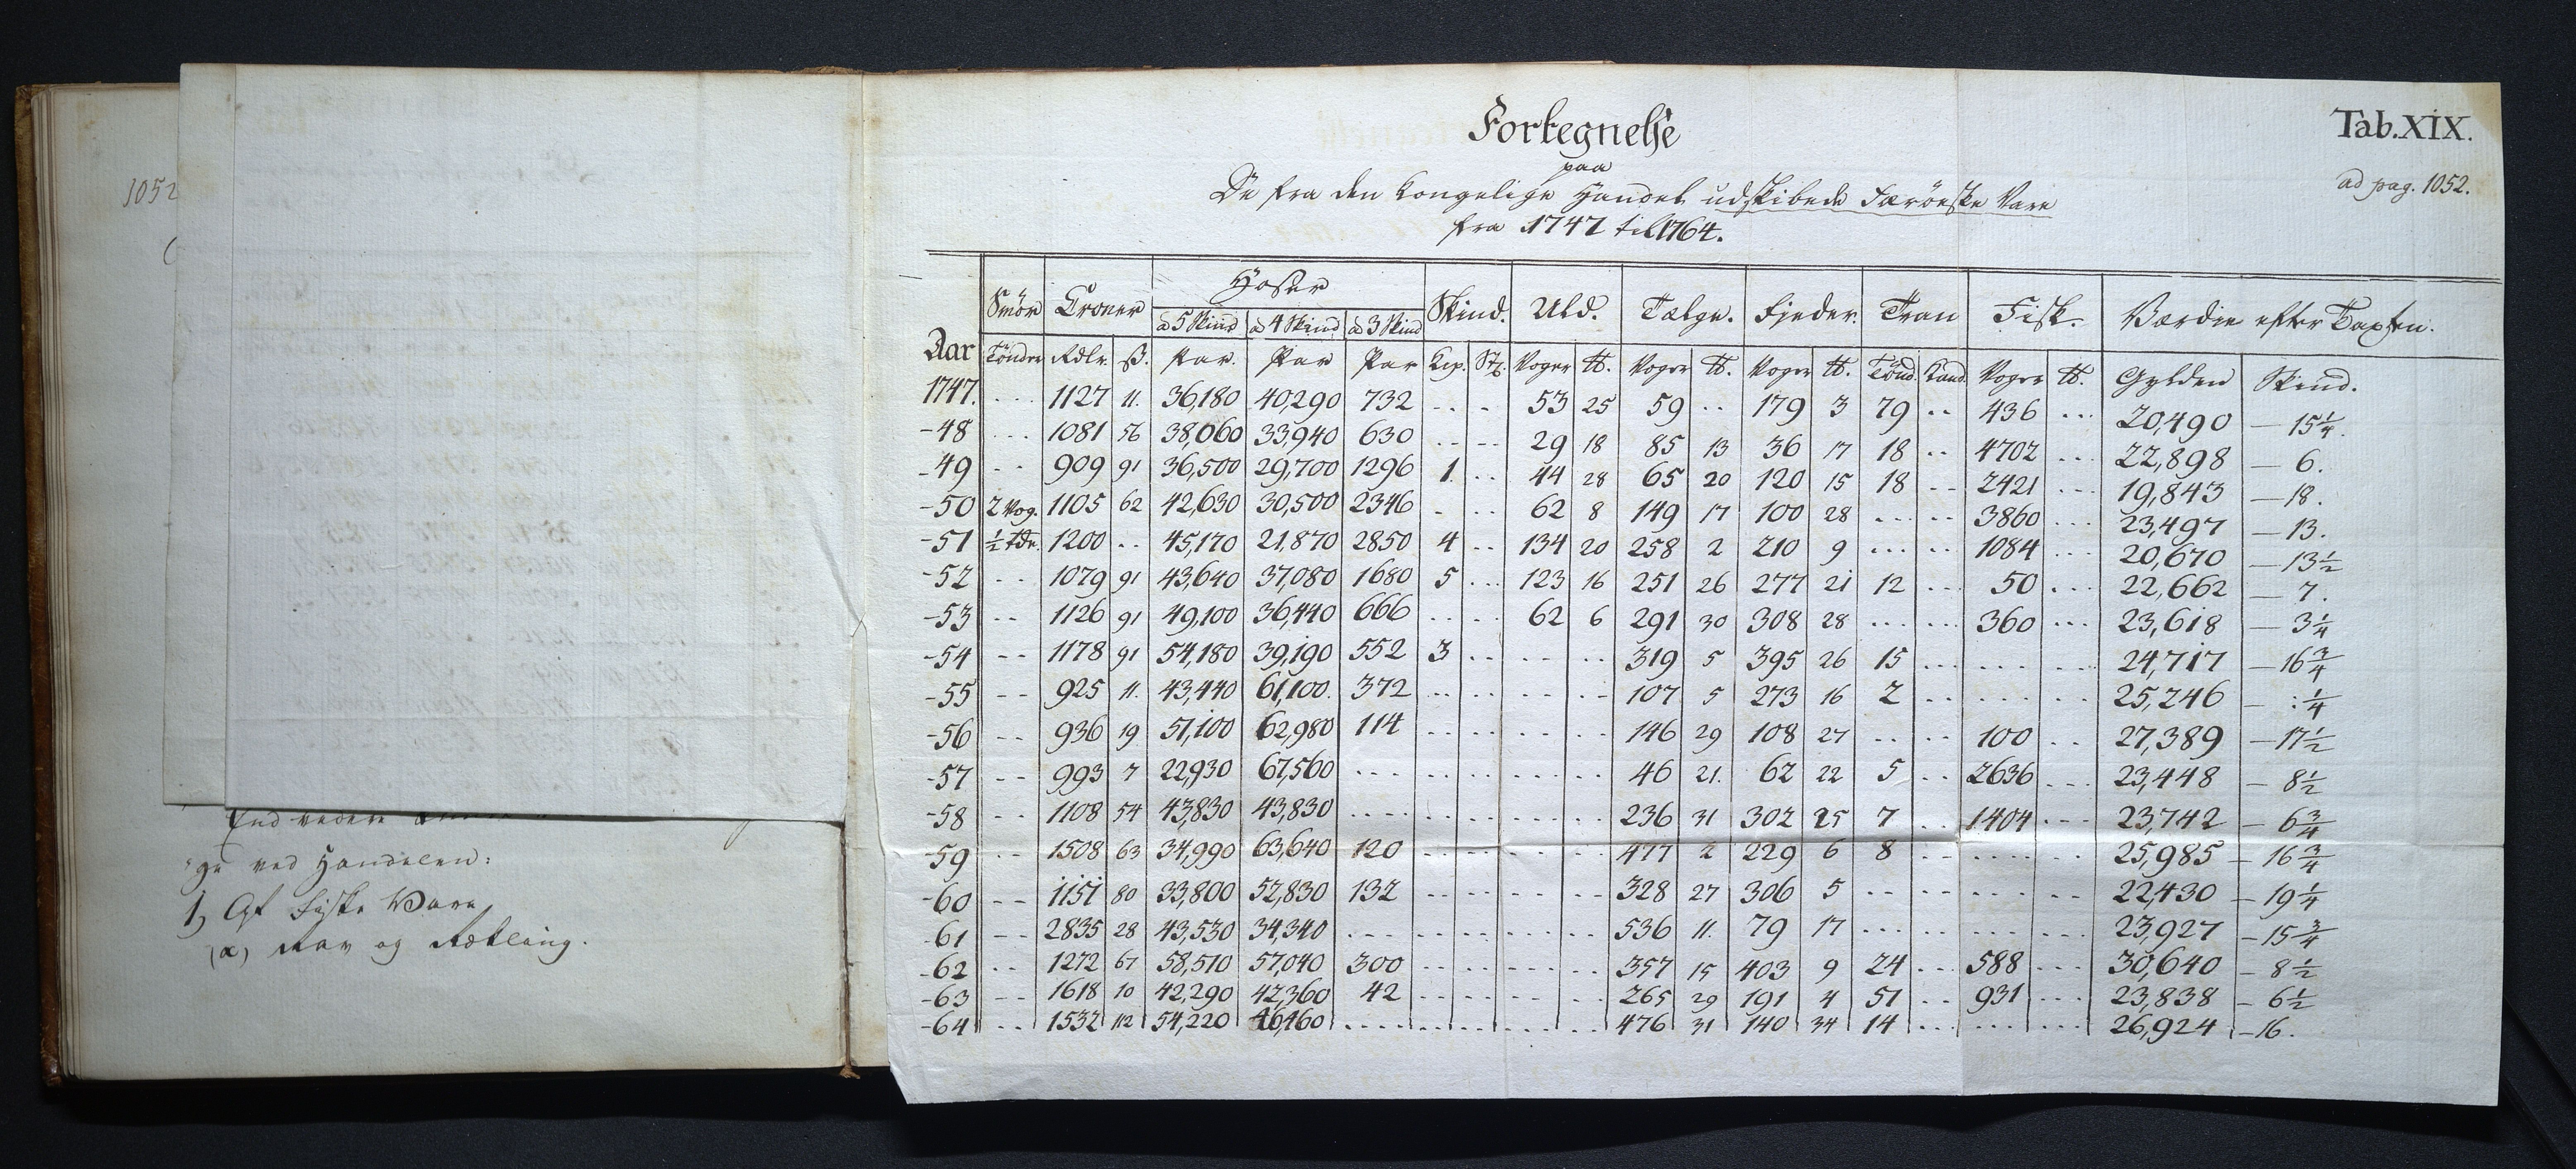 1052
End videre
ge ved Handelen:
1, Af Fiske Vare,
(a) Rav og Rekling.
Tab. XIX.
ad pag. 1052.
Fortegnelse
paa
De fra den Kongelige Handel udskibede Færöeske Vare
fra 1747 til 1764.
Aar Smör Croner Hoser Skind. Uld. Talge. Fjeder. Tran Fisk. Værdie efter Taxten.
a 5 Skind a 4 Skind a 3 Skind
Tönder Rdlr. ß. Par. Par Par Kip. Stk. Voger ℔. Voger ℔. Voger ℔. Tönd. Kand. Voger ℔. Gylden Skind.
1747. ... 1127 11. 36,180 40,290 732 .. .. 53 25 59 .. 179 3 79 .. 436 ... 20,490 — 15 1/4.
-48 ... 1081 56 38,060 33,940 630 .. .. 29 18 85 13 36 17 18 .. 4702 ... 22,898 — 6.
-49 .. 909 91 36,500 29,700 1296 1. .. 44 28 65 20 120 15 18 .. 2421 ... 19,843 — 18.
-50 2 Vog. 1105 62 42,630 30,500 2346 . .. 62 8 149 17 100 28 ... .. 3860 ... 23,497 — 13.
-51 1/2 Tdr. 1200 .. 45,170 21,870 2850 4 .. 134 20 258 2 210 9 ... .. 1084 ... 20,670 — 13 1/2
-52 .. 1079 91 43,640 37,080 1680 5 ... 123 16 251 26 277 21 12 ... 50 ... 22,662 — 7.
-53 .. 1126 91 49,100 36,440 666 .. .. 62 6 291 30 308 28 ... ... 360 ... 23,618 — 3 1/4
-54 .. 1178 91 54,180 39,190 552 3 .. .. .. 319 5 395 26 15 ... ... .. 24,717 — 16 3/4
-55 .. 925 11. 43,440 61,100. 372 .. .. .. .. 107 5 273 16 2 .. ... .. 25,246 — : 1/4
-56 .. 936 19 51,100 62,980 114 .. .. .. .. 146 29 108 27 .. .. 100 .. 27,389 — 17 1/2
-57 .. 993 7 22,930 67,560 ... .. .. .. .. 46 21. 62 22 5 .. 2636 ... 23,448 — 8 1/2
-58 .. 1108 54 43,830 43,830 ... .. .. .. .. 236 31 302 25 7 .. 1404 ... 23,742 — 6 3/4
-59 .. 1508 63 34,990 63,640 120 .. .. .. .. 477 2 229 6 8 .. ... .. 25,985 — 16 3/4
-60 .. 1151 80 33,800 52,830 132 .. .. .. .. 328 27 306 5 .. .. ... .. 22,430 — 19 1/4
-61 .. 2835 28 43,530 34,340 ... .. .. .. .. 536 11. 79 17 ... .. ... .. 23,927 — 15 3/4
-62 .. 1272 67 58,510 57,040 300 .. .. .. .. 357 15 403 9 24 .. 588 ... 30,640 — 8 1/2
-63 .. 1618 10 42,290 42,360 42 .. .. .. .. 265 29 191 4 51 .. 931 ... 23,838 — 6 1/2
-64 .. 1532 112 54,220 46,460 ... .. .. .. .. 476 31 140 34 14 ... ... .. 26,924 — 16.